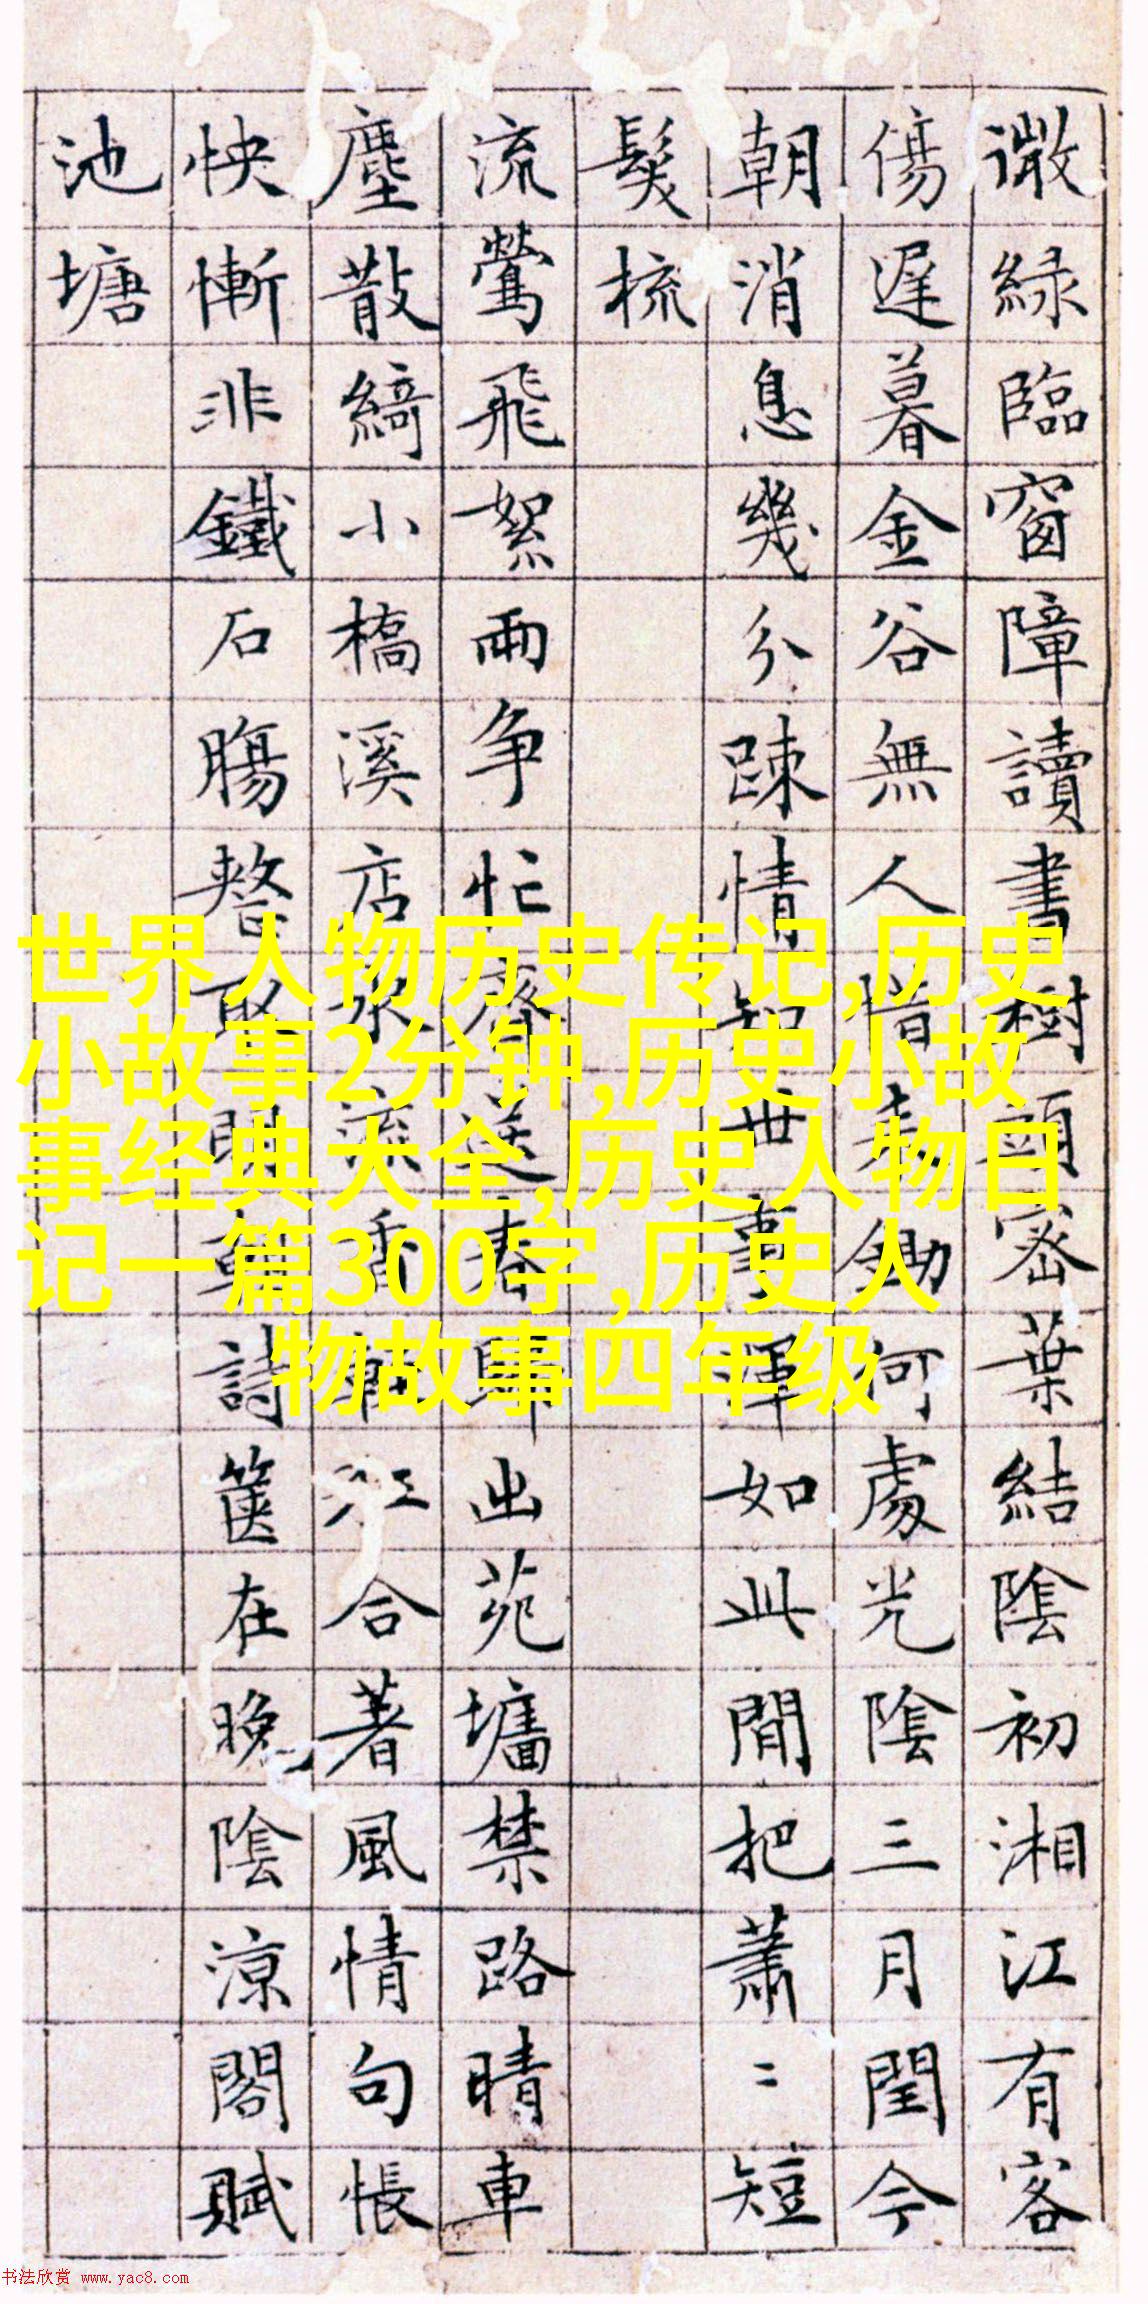 微綠臨窗障讀書樹頭密葉結陰初湘江有客
傷遲暮金谷無人惜鋤何處光陰三月閏今
朝消息幾分踈情知世事渾如此間把蕭〻短
鬂梳
流鶯飛絮兩爭忙齊送春歸出苑墻禁路晴車
塵散綺小橋溪店水流香江合著風情句悵
怏慚非鐵石腸整取詩篋在晚陰涼閣賦
池塘
世界人物历史传记,历史
小故事2分钟,历史小故
事经典大全,历史人物日
记一篇300字,历史人
物故事四年级
书法欣赏 www.yac8.com